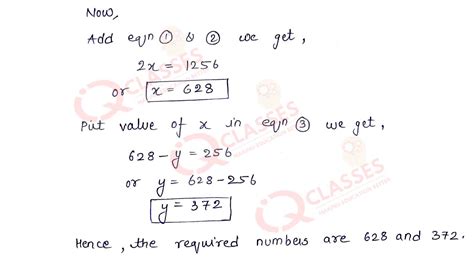 Now,
Add eqn ① & ② we get,
2x = 1256
or x = 628
Put value of x in eqn ③ we get,
628 - y = 256
or y = 628 - 256
y = 372
Hence, the required numbers are 628 and 372.
IQ CLASSES
IQ CLASSES
IQ CLASSES